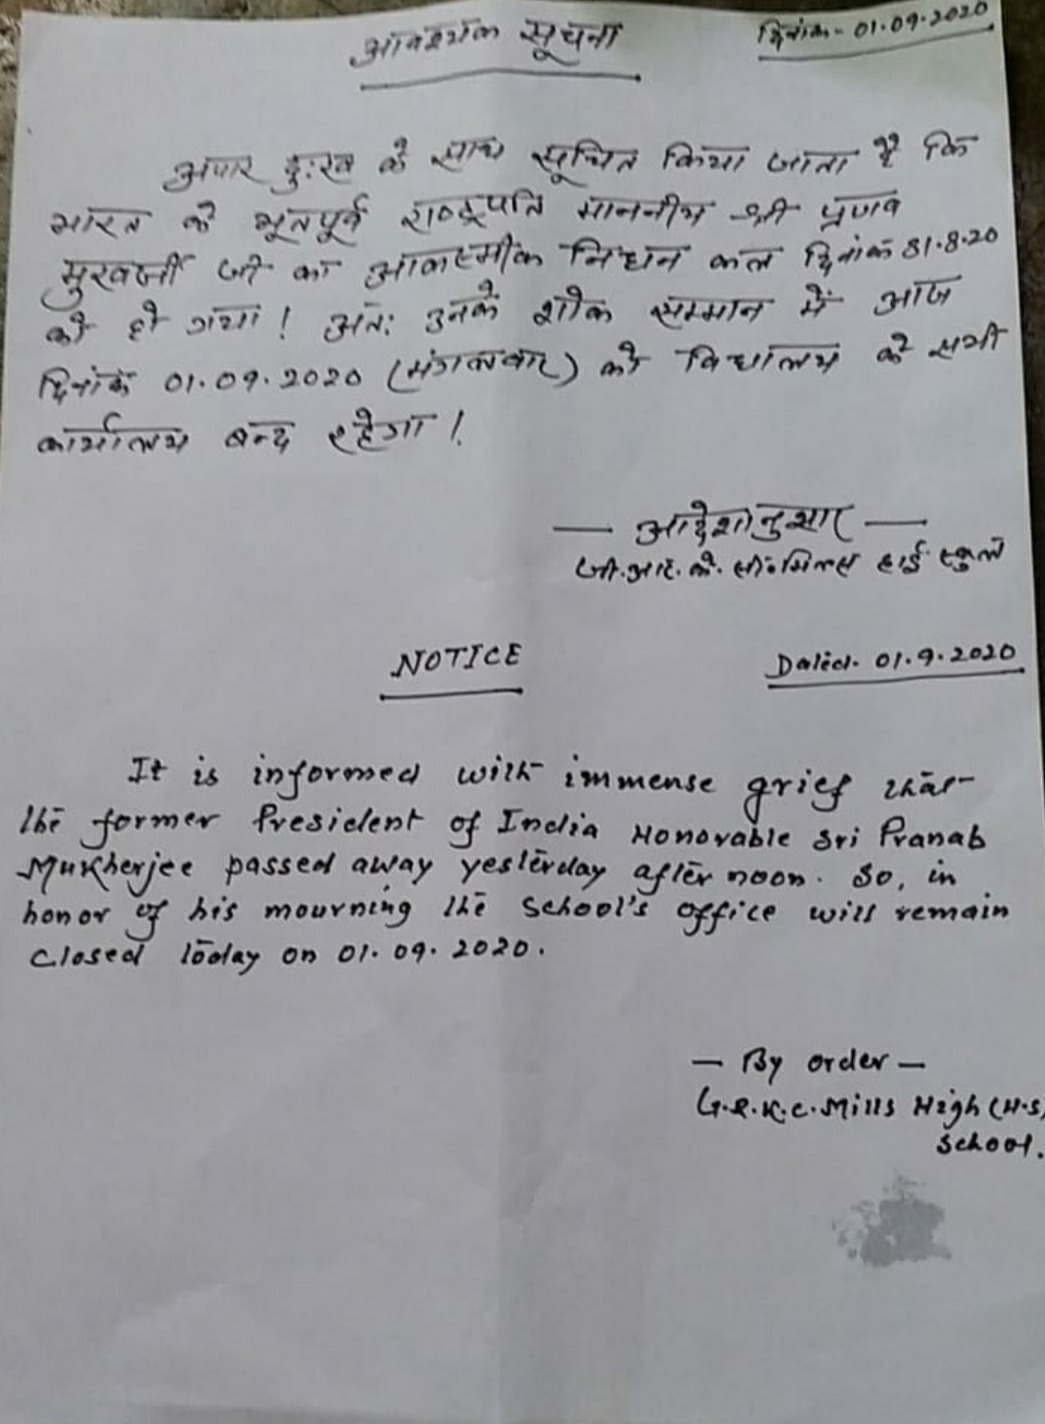 आवश्यक सूचना
दिनांक- 01.09.2020
अपार दुःख के साथ सूचित किया जाता है कि
भारत के भूतपूर्व राष्ट्रपति माननीय श्री प्रणव
मुखर्जी जी का आकस्मीक निधन कल दिनांक 31.8.20
को हो गया! अतः उनके शोक सम्मान में आज
दिनांक 01.09.2020 (मंगलवार) को विद्यालय के सभी
कार्यालय बन्द रहेगा!
— आदेशानुसार —
जी.आर.के.सी.मिल्स हाई स्कुल
NOTICE
Dated. 01.9.2020
It is informed with immense grief that
the former President of India Honorable Sri Pranab
Mukherjee passed away yesterday after noon. So, in
honor of his mourning the School's office will remain
closed today on 01.09.2020.
— By order —
G.R.K.C. Mills High (H.S)
School.